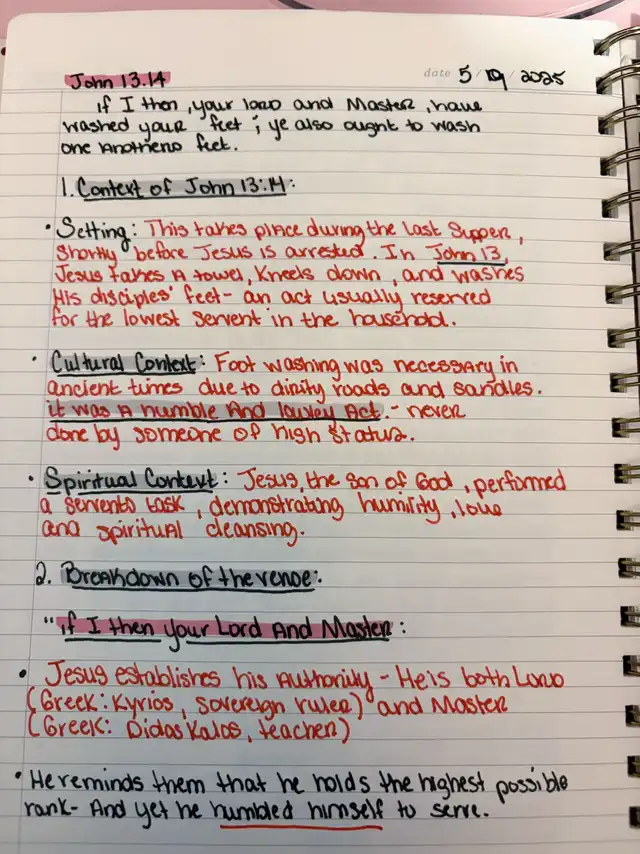 John 13.14
date 5/19/2025
if I then, your lord and Master, have
washed your feet; ye also ought to wash
one Anothers feet.
1. Context of John 13:14:
• Setting: This takes place during the last Supper,
Shortly before Jesus is arrested. In John 13,
Jesus takes A towel, Kneels down, and washes
His disciples' feet- an act usually reserved
for the lowest Servent in the household.
• Cultural Context: Foot washing was necessary in
ancient times due to dirity roads and sandles.
it was A humble And lowley Act. - never
done by someone of high Status.
• Spiritual Context: Jesus, the son of God, performed
a servents task, demonstrating humility, love
and spiritual cleansing.
2. Breakdown of the verse:
"if I then your Lord And Master:
• Jesus establishes his Authority - He is both Lord
(Greek: Kyrios, sovereign ruler) and Master
(Greek: DidasKalos, teacher)
• He reminds them that he holds the highest possible
rank- And yet he humbled himself to serve.